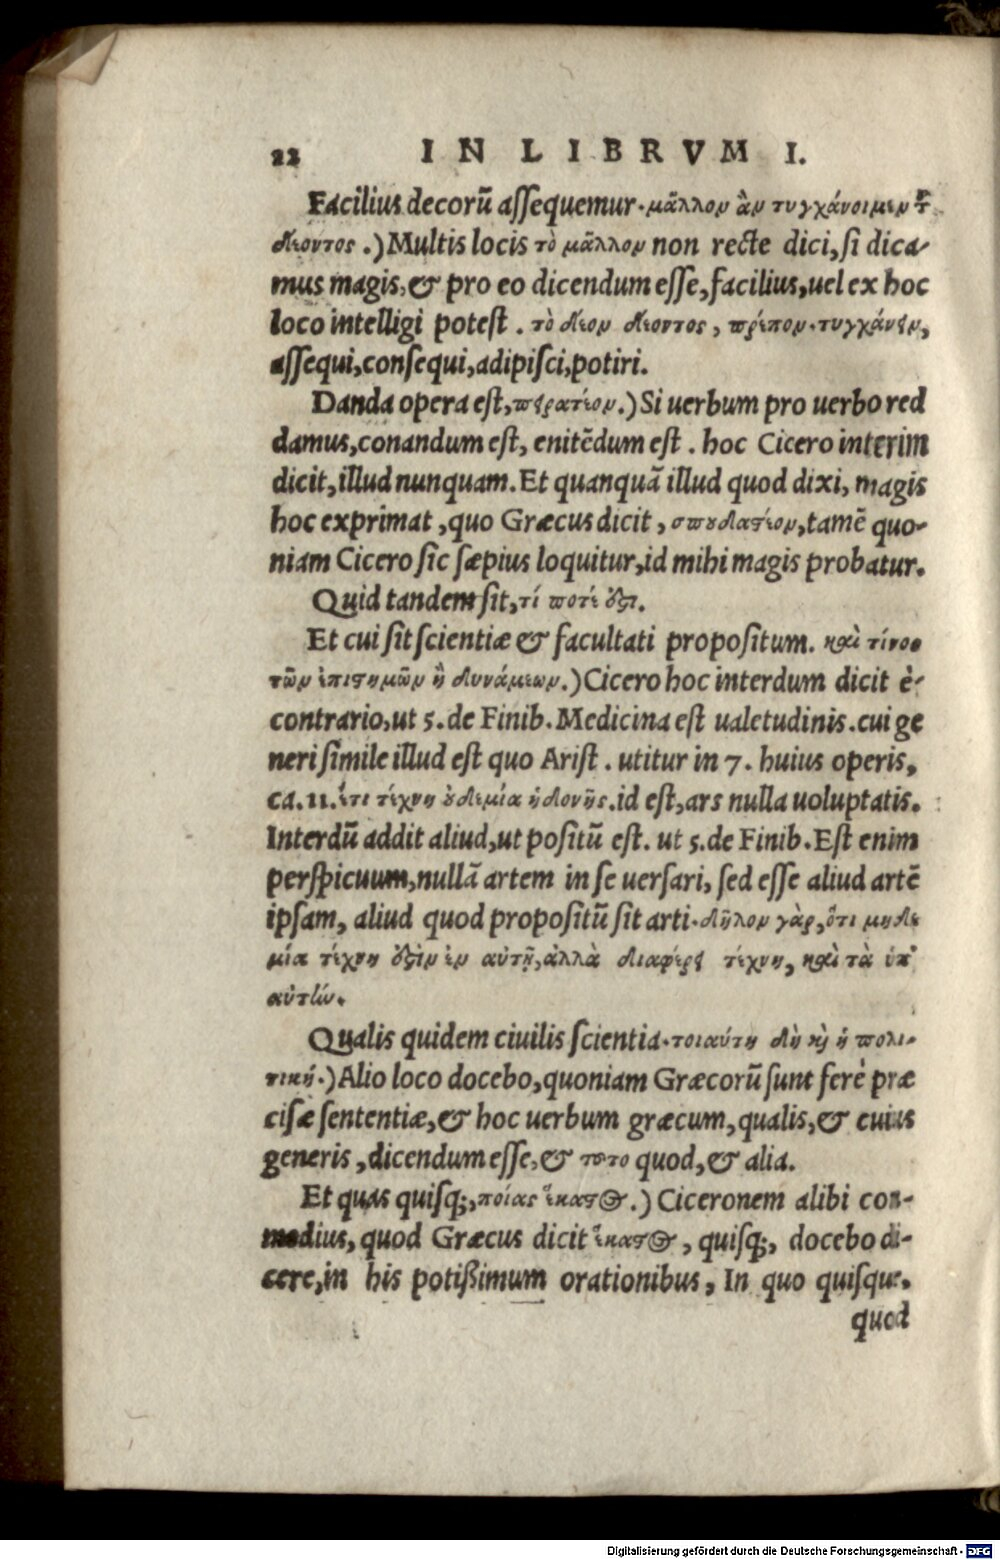 22 IN LIBRVM I.
Facilius decorũ aſſequemur. μᾶλλον ἂν τυγχάνοιμεν τ̃
δέοντος.) Multis locis τὸ μᾶλλον non recte dici, ſi dica-
mus magis, & pro eo dicendum eſſe, facilius, uel ex hoc
loco intelligi poteſt. τὸ δέον δέοντος, πρέπον. τυγχάνειν,
aſſequi, conſequi, adipiſci, potiri.
Danda opera eſt, πειρατέον.) Si uerbum pro uerbo red
damus, conandum eſt, enitẽdum eſt. hoc Cicero interim
dicit, illud nunquam. Et quanquã illud quod dixi, magis
hoc exprimat, quo Græcus dicit, σπουδαστέον, tamẽ quo-
niam Cicero ſic ſæpius loquitur, id mihi magis probatur.
Quid tandem ſit, τί ποτέ ὅστι.
Et cui ſit ſcientiæ & facultati propoſitum. καὶ τίνος
τῶν ἐπιστημῶν ἢ δυνάμεων.) Cicero hoc interdum dicit è
contrario, ut 5. de Finib. Medicina eſt ualetudinis. cui ge
neri ſimile illud eſt quo Ariſt. utitur in 7. huius operis,
ca. 11. ἔτι τέχνη οὐδεμία ἡδονῆς. id eſt, ars nulla uoluptatis.
Interdũ addit aliud, ut poſitũ eſt. ut 5. de Finib. Eſt enim
perſpicuum, nullã artem in ſe uerſari, ſed eſſe aliud artẽ
ipſam, aliud quod propoſitũ ſit arti. δῆλον γὰρ, ὅτι μηδε
μία τέχνη ὅστιν ἐν αὐτῇ, ἀλλὰ διαφέρει τέχνη, καὶ τὰ ὑπ'
αὐτὼ.
Qualis quidem ciuilis ſcientia. τοιαύτη δὴ κὶ ἡ πολι-
τική.) Alio loco docebo, quoniam Græcorũ ſunt ferè præ
ciſæ ſententiæ, & hoc uerbum græcum, qualis, & cuius
generis, dicendum eſſe, & τοῦτο quod, & alia.
Et quas quiſq;, ποίας ἕκαστος.) Ciceronem alibi com-
modius, quod Græcus dicit ἕκαστος, quiſq;, docebo di-
cere, in his potiſsimum orationibus, In quo quiſque.
quod
Digitalisierung gefördert durch die Deutsche Forschungsgemeinschaft - DFG